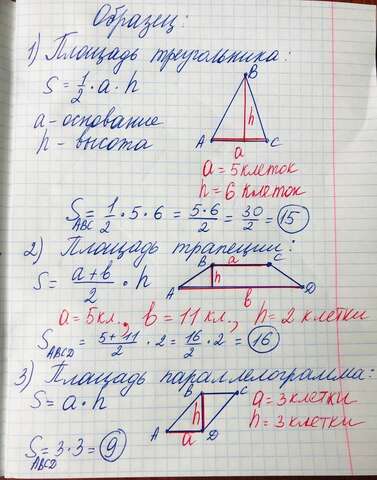 Образец:
1) Площадь треугольника:
S = 1/2 · a · h
a - основание
h - высота
B
h
A
C
a
a = 5 клеток
h = 6 клеток
S ABC = 1/2 · 5 · 6 = 5·6/2 = 30/2 = 15
2) Площадь трапеции:
S = a+b/2 · h
B a C
h
A
D
b
a = 5 кл., b = 11 кл., h = 2 клетки
S ABCD = 5+11/2 · 2 = 16/2 · 2 = 16
3) Площадь параллелограмма:
S = a · h
B
C
h
A
D
a
a = 3 клетки
h = 3 клетки
S ABCD = 3·3 = 9